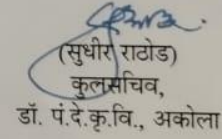 (सुधीर राठोड)
कुलसचिव,
डॉ. पं.दे.कृ.वि., अकोला